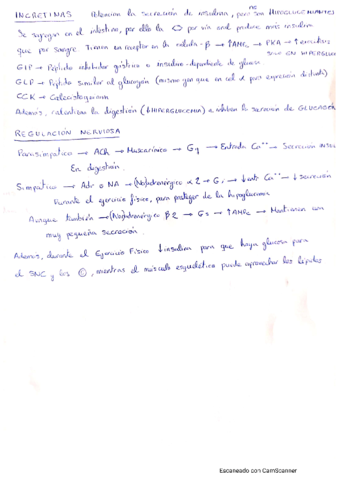 INCRETINAS Potencian la secreción de insulina, pero no son HIPOGLUCEMIANTES
Se segregan en el intestino, por ello la por vía oral produce más insulina
que por sangre. Tienen un receptor en la célula-β → ↑AMPc → PKA → ↑exocitosis
GIP → Péptido inhibidor gástrico o insulino-dependiente de glucosa
GLP → Péptido similar al glucagón (mismo gen que en cel α pero expresión distinta)
CCK → Colecistoquinina
Además, ralentizan la digestión (↓HIPERGLUCEMIA) e inhiben la secreción de GLUCAGÓN
REGULACIÓN NERVIOSA
Parasimpático → ACh → Muscarínico → Gq → Entrada Ca⁺⁺ → Secreción
En digestión.
Simpático → Adr o NA → (No)adrenérgico α2 → Gi → ↓entr Ca⁺⁺ → ↓secreción
Durante el ejercicio físico, para proteger de la hipoglucemia
Aunque también → (No)adrenérgico β2 → Gs → ↑AMPc → Mantienen una
muy pequeña secreción.
Además, durante el Ejercicio Físico ↓insulina para que haya glucosa para
el SNC y los, mientras el músculo esquelético puede aprovechar los lípidos
Escaneado con CamScanner